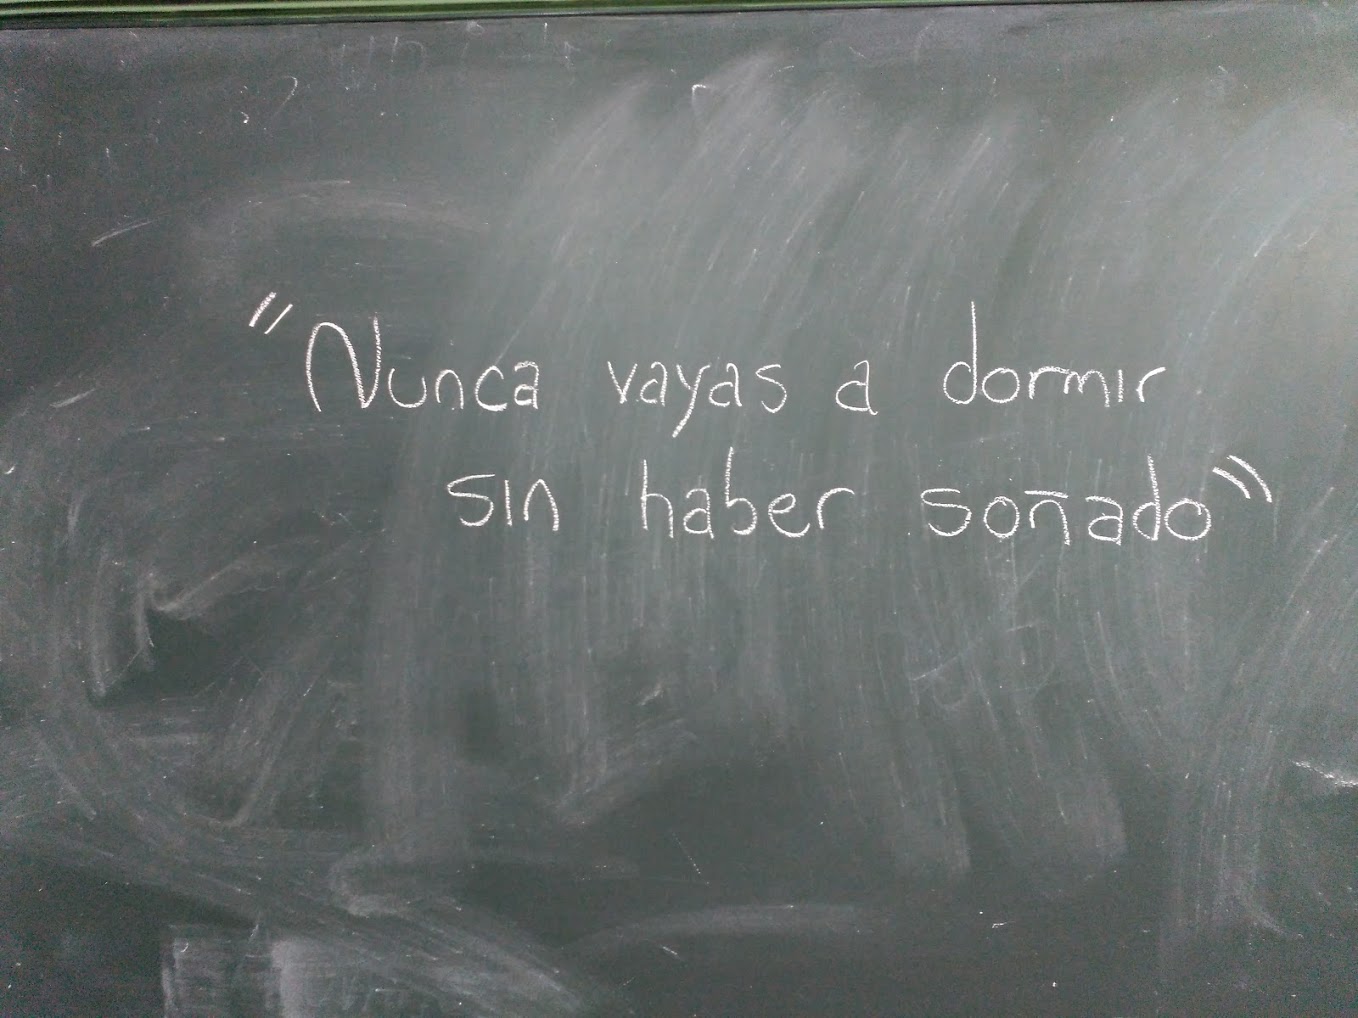 "Nunca vayas a dormir
sin haber soñado"